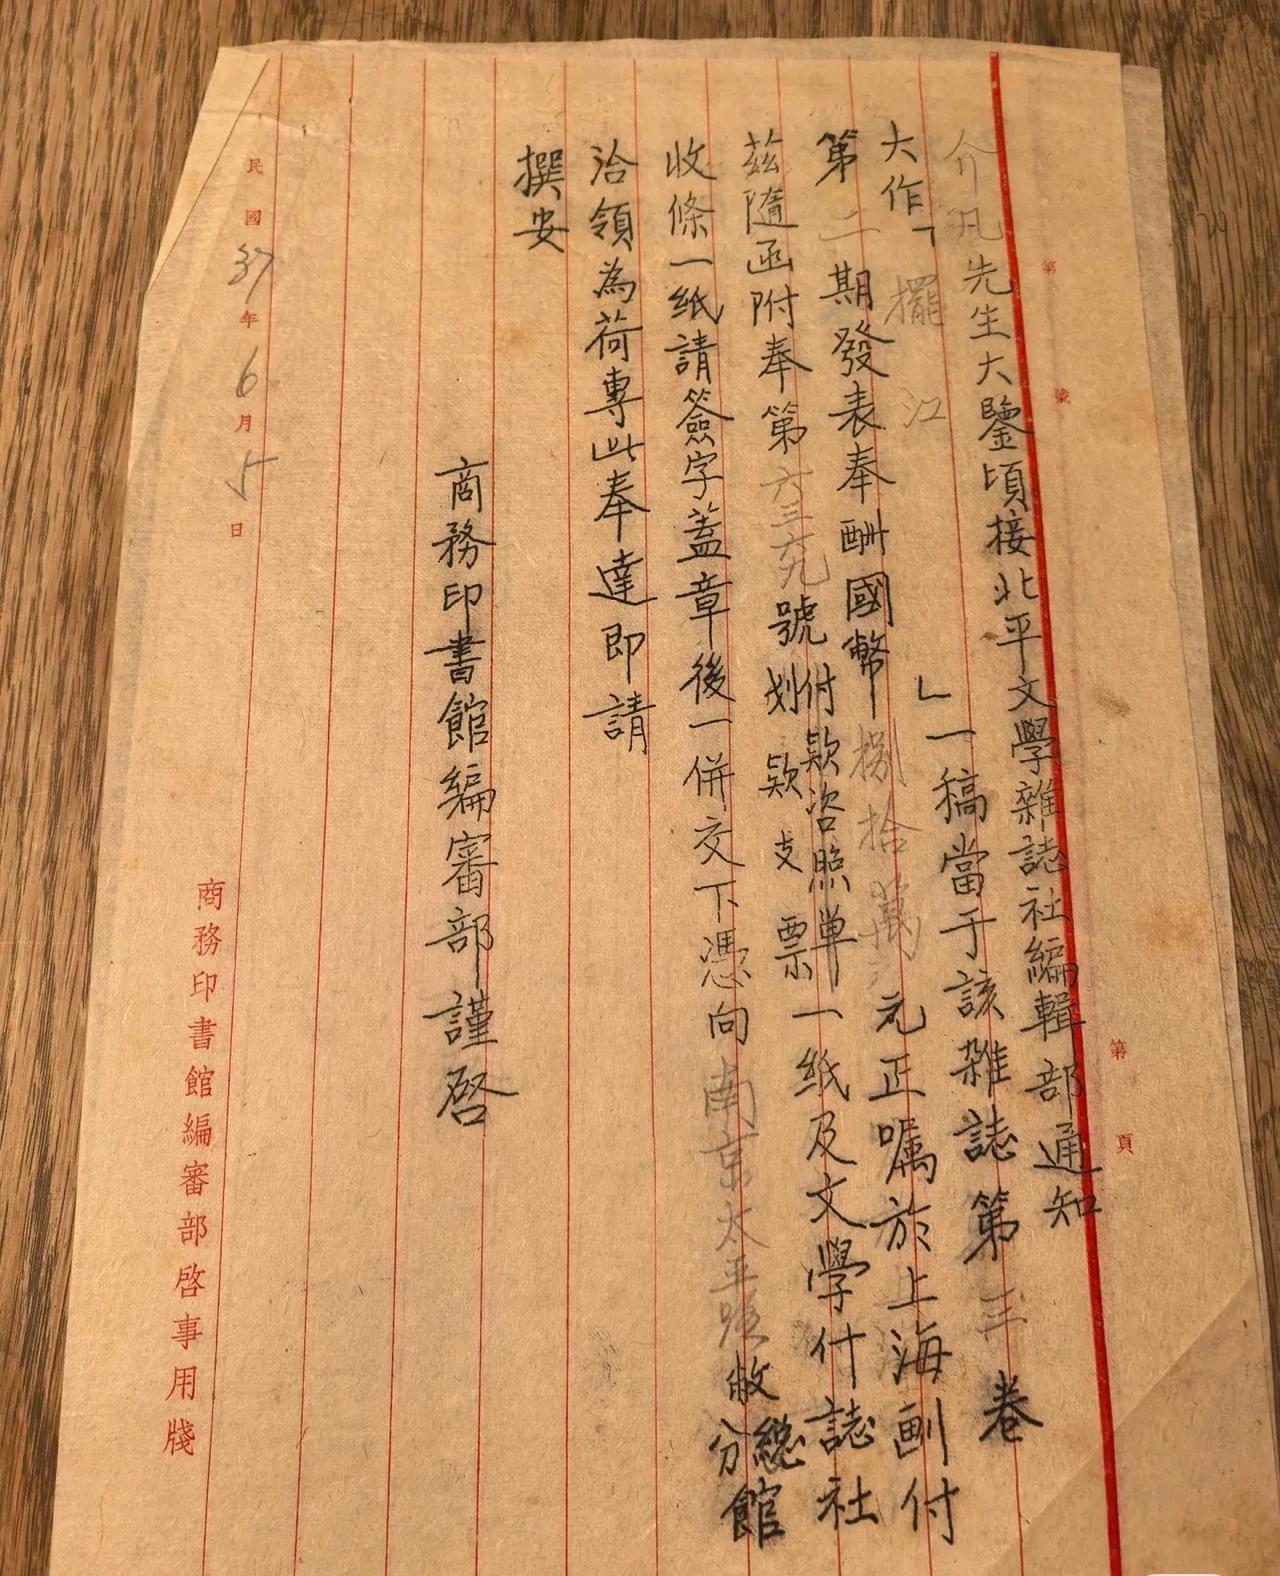 第　號
第　頁
介凡先生大鑒頃接北平文學雜誌社編輯部通知
大作「擺江」一稿當于該雜誌第三卷
第二期發表奉酬國幣捌拾萬元正囑於上海劃付
茲隨函附奉第號付款咨照单划款支票一紙及文學什誌社
收條一紙請簽字蓋章後一併交下憑向南京太平路敝總分館
洽領為荷專此奉達即請
撰安
商務印書館編審部謹啓
民國37年6月5日
商務印書館編審部啓事用牋